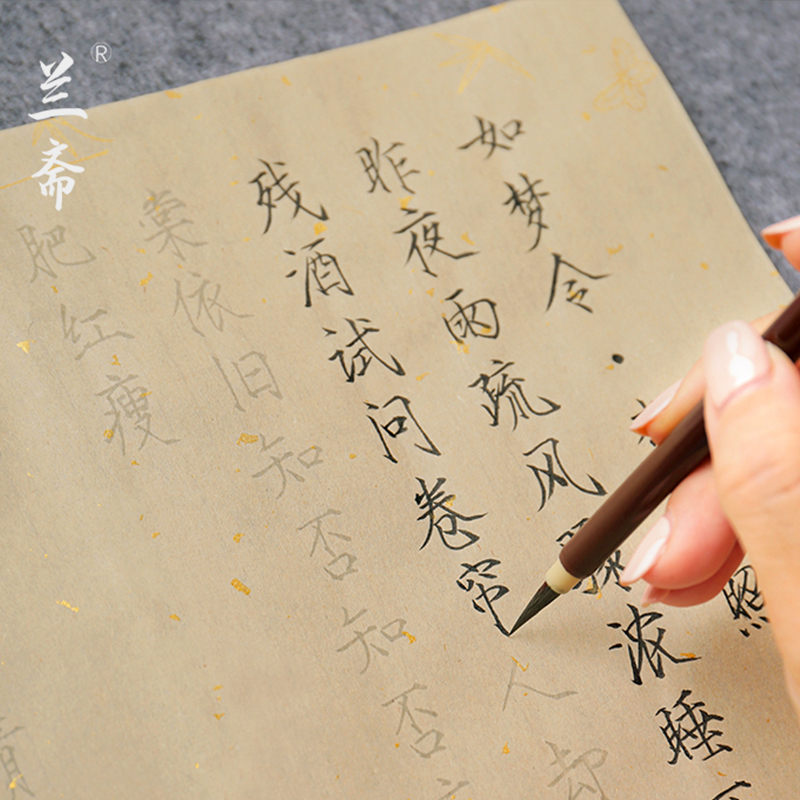 兰斋®
如梦令·照
昨夜雨疏风骤浓睡
残酒试问卷帘人却
棠依旧知否知否
肥红瘦